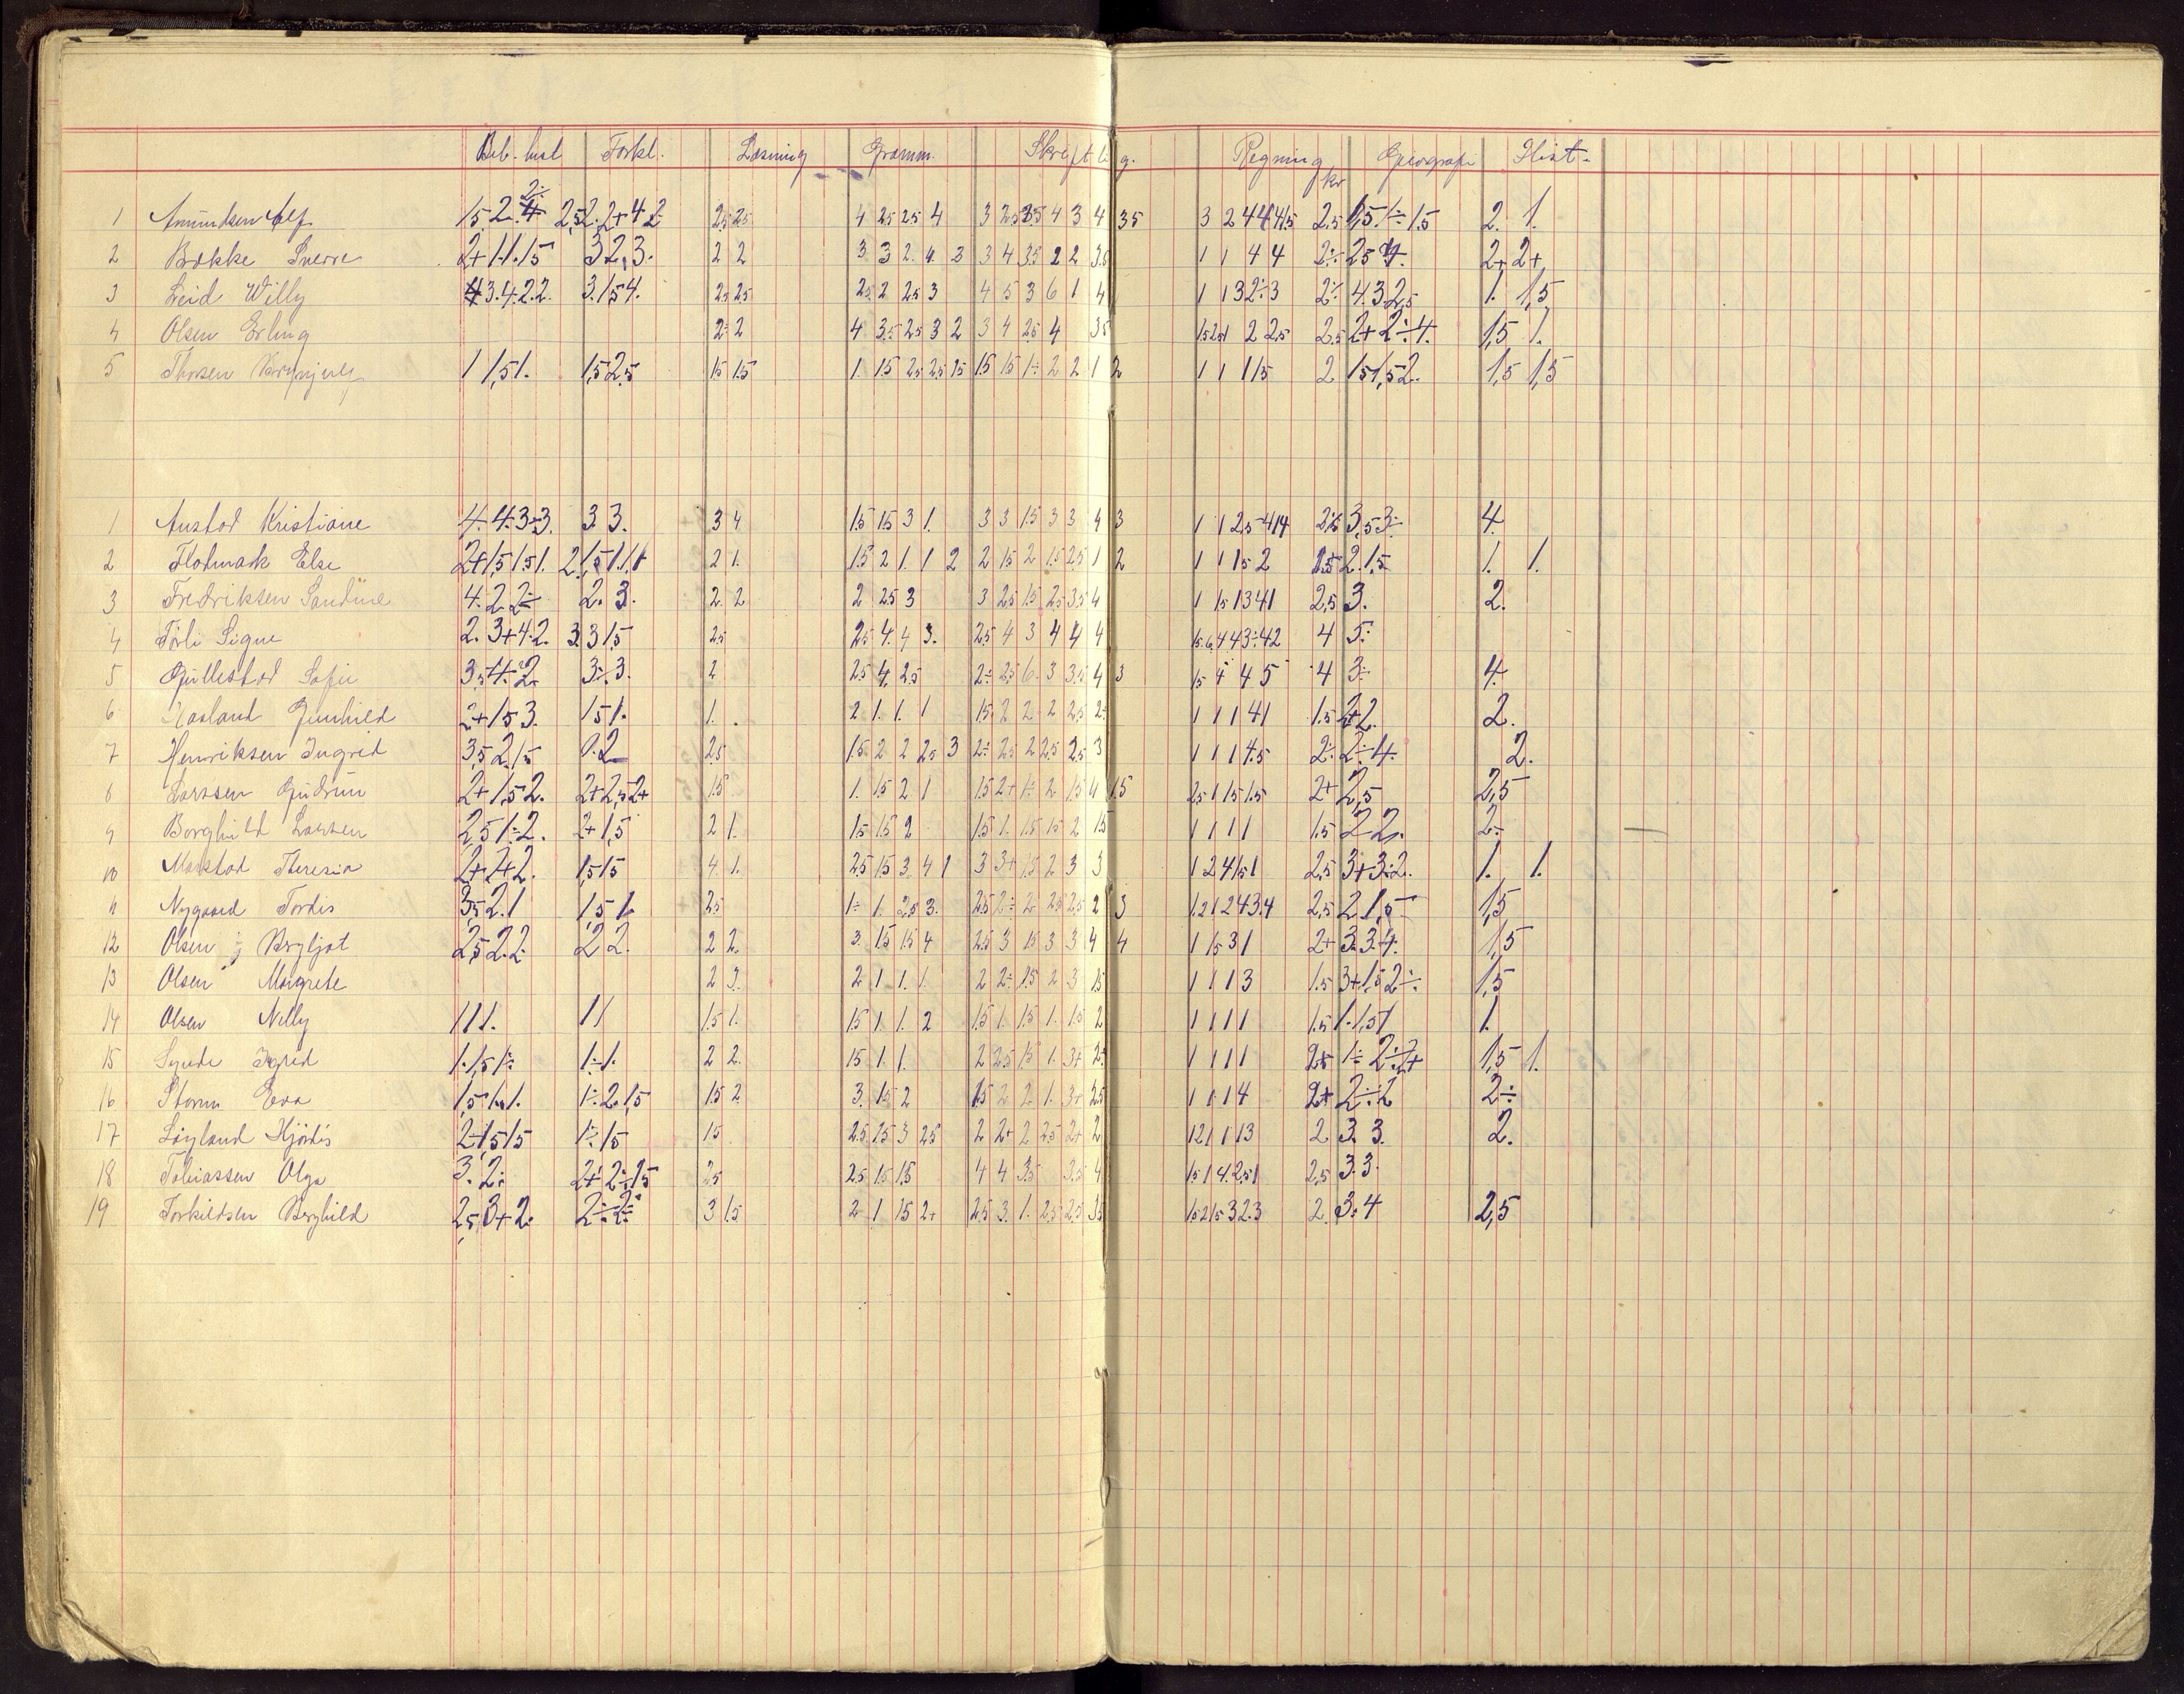 Bib. hist Forkl. Læsning Gramm. Skriftlig. Regning kr Geografi Hist.
1 Amundsen Alf 1,5 2. 2÷ 2,5 2. 2+ 4 2÷ 2,5 2,5 4 2,5 2,5 4 3 2,5 3,5 4 3 4 3,5 3 2 4 4 4 1,5 2,5 1,5 1÷ 1.5 2. 1.
2 Bække Sverre 2+ 1. 1. 1.5 3 2, 3. 2 2 3. 3 2. 4. 3 3 4 3,5 2 2 3,5 1 1 4 4 2÷ 2 5 4. 2+ 2+
3 Leid Willy 4 3. 4. 2. 2. 3. 1,5 4. 2,5 2,5 2,5 2 2,5 3 4 5 3 6 1 4 1 1 3 2÷ 3 2÷ 4. 3. 2,5 1. 1,5
4 Olsen Erling 2÷ 2 4. 3,5 2,5 3 2 3 4 2,5 4 3,5 1,5 2,5 1 2 2,5 2,5 2+ 2÷ 4. 1,5 1.
5 Thorsen 1 1,5 1. 1,5 2,5 1,5 1.5 1. 1.5 2,5 2,5 1,5 1.5 1.5 1÷ 2 2 1 2 1 1 1 1,5 2 1,5 1,5 2. 1,5 1,5
1 Austad Kristiane 4. 4. 3÷ 3. 3 3. 3 4 1.5 1.5 3 1. 3 3 1.5 3 3 4 3 1 1 2,5 4 1 4 2,5 3,5 3÷ 4.
2 Flotmark Else 2+ 1,5 1.5 1. 2. 1,5 1. 1. 1 2 1. 1.5 2 1. 1 2 2 1.5 2 1.5 2,5 1 2 1 1 1.5 2 1.5 2. 1,5 1. 1.
3 Fredriksen Sandine 4. 2. 2÷ 2. 3. 2. 2 2 2,5 3 3 2,5 1.5 2,5 3,5 4 1 1,5 1 3 4 1 2,5 3. 2.
4 Förli Signe 2. 3+ 4. 2. 3. 3 1,5 2,5 2,5 4. 4 3. 2,5 4 3 4 4 4 1,5 6 4 4 3÷ 4 2 4 5.
5 Gullestad Sofie 3,5 4÷ 2. 3÷ 3. 2 2,5 4, 2,5 2÷ 2,5 6. 3 3,5 4 3 1,5 4 4 5 4 3÷ 4.
6 Haaland Gunhild 2+ 1.5 3. 1.5 1. 1. 2 1. 1. 1 1.5 2 2 2 2,5 2÷ 1 1 1 4 1 1.5 2+ 2. 2.
7 Henriksen Ingrid 3,5 2, 1,5 0. 2 2,5 1.5 2 2 2,5 3 2÷ 2,5 2 2,5 2,5 3 1 1 1 4.5 2÷ 2÷ 4. 2.
8 Larssen Gudrun 2+ 1,5 2. 2+ 2,5 2+ 1.5 1. 1.5 2 1 1.5 2+ 1÷ 2 1,5 4 1.5 2,5 1 1,5 1.5 2+ 2,5 2,5
9 Borghild Larsen 2,5 1÷ 2. 2+ 1,5 2 1. 1.5 1.5 2 1.5 1. 1.5 1.5 2 1.5 1 1 1 1 1.5 2 2. 2÷
10 Theresia 2+ 2+ 2. 1,5 1,5 4. 1. 2,5 1.5 3. 4 1 3 3+ 1,5 2 3 3 1 2 4 1,5 1 2,5 3+ 3÷ 2. 1. 1.
11 Nygaard Tordis 3,5 2. 1 1,5 1. 2,5 1÷ 1. 2,5 3. 2,5 2÷ 2 2,5 2,5 2 3 1. 2 1 2 4 3. 4 2,5 2 1,5 1,5
12 Olsen Bergljot 2,5 2. 2. 2 2. 2 2. 3. 1.5 1.5 4 2,5 3 1.5 3 3 4 4 1 1,5 3 1 2+ 3. 3. 4. 1,5
13 Olsen Margrete 2 3. 2 1 1. 1. 2 2÷ 1.5 2 3 1,5 1 1 1 3 1.5 3+ 1,5 2÷ 1,5
14 Olsen Nelly 1 1 1. 1 1 1.5 1. 1.5 1 1. 2 1.5 1. 1.5 1. 1.5 2 1 1 1 1 1.5 1. 1,5 1 1.
15 Synde 1. 1,5 1÷ 1÷ 1. 2 2. 1.5 1. 1. 2 2,5 1.5 1. 3+ 2÷ 1 1 1 1 2,5 1÷ 2÷ 2+ 1,5 1.
16 Storm Eva 1,5 1. 1. 1÷ 2. 1,5 1.5 2 3. 1.5 2 1.5 2 2 1. 3+ 2,5 1 1 1 4 2+ 2÷ 2 2÷
17 Løyland Hjördis 2÷ 1,5 1,5 1÷ 1,5 1.5 2,5 2,5 3 2,5 2 2+ 2 2,5 2+ 2 1 2 1 1 1 3 2 3. 3. 2.
18 Tobiassen Olga 3. 2÷ 2+ 2÷ 1,5 2,5 2,5 1.5 1.5 4 4 3,5 3,5 4 1,5 1 4. 2,5 1 2,5 3. 3.
19 Torkildsen Berghild 2,5 3+ 2. 2÷ 2÷ 3 1.5 2 1 1.5 2+ 2,5 3. 1. 2,5 2,5 3,5 1,5 2 1,5 3 2. 3 2. 3. 4 2,5